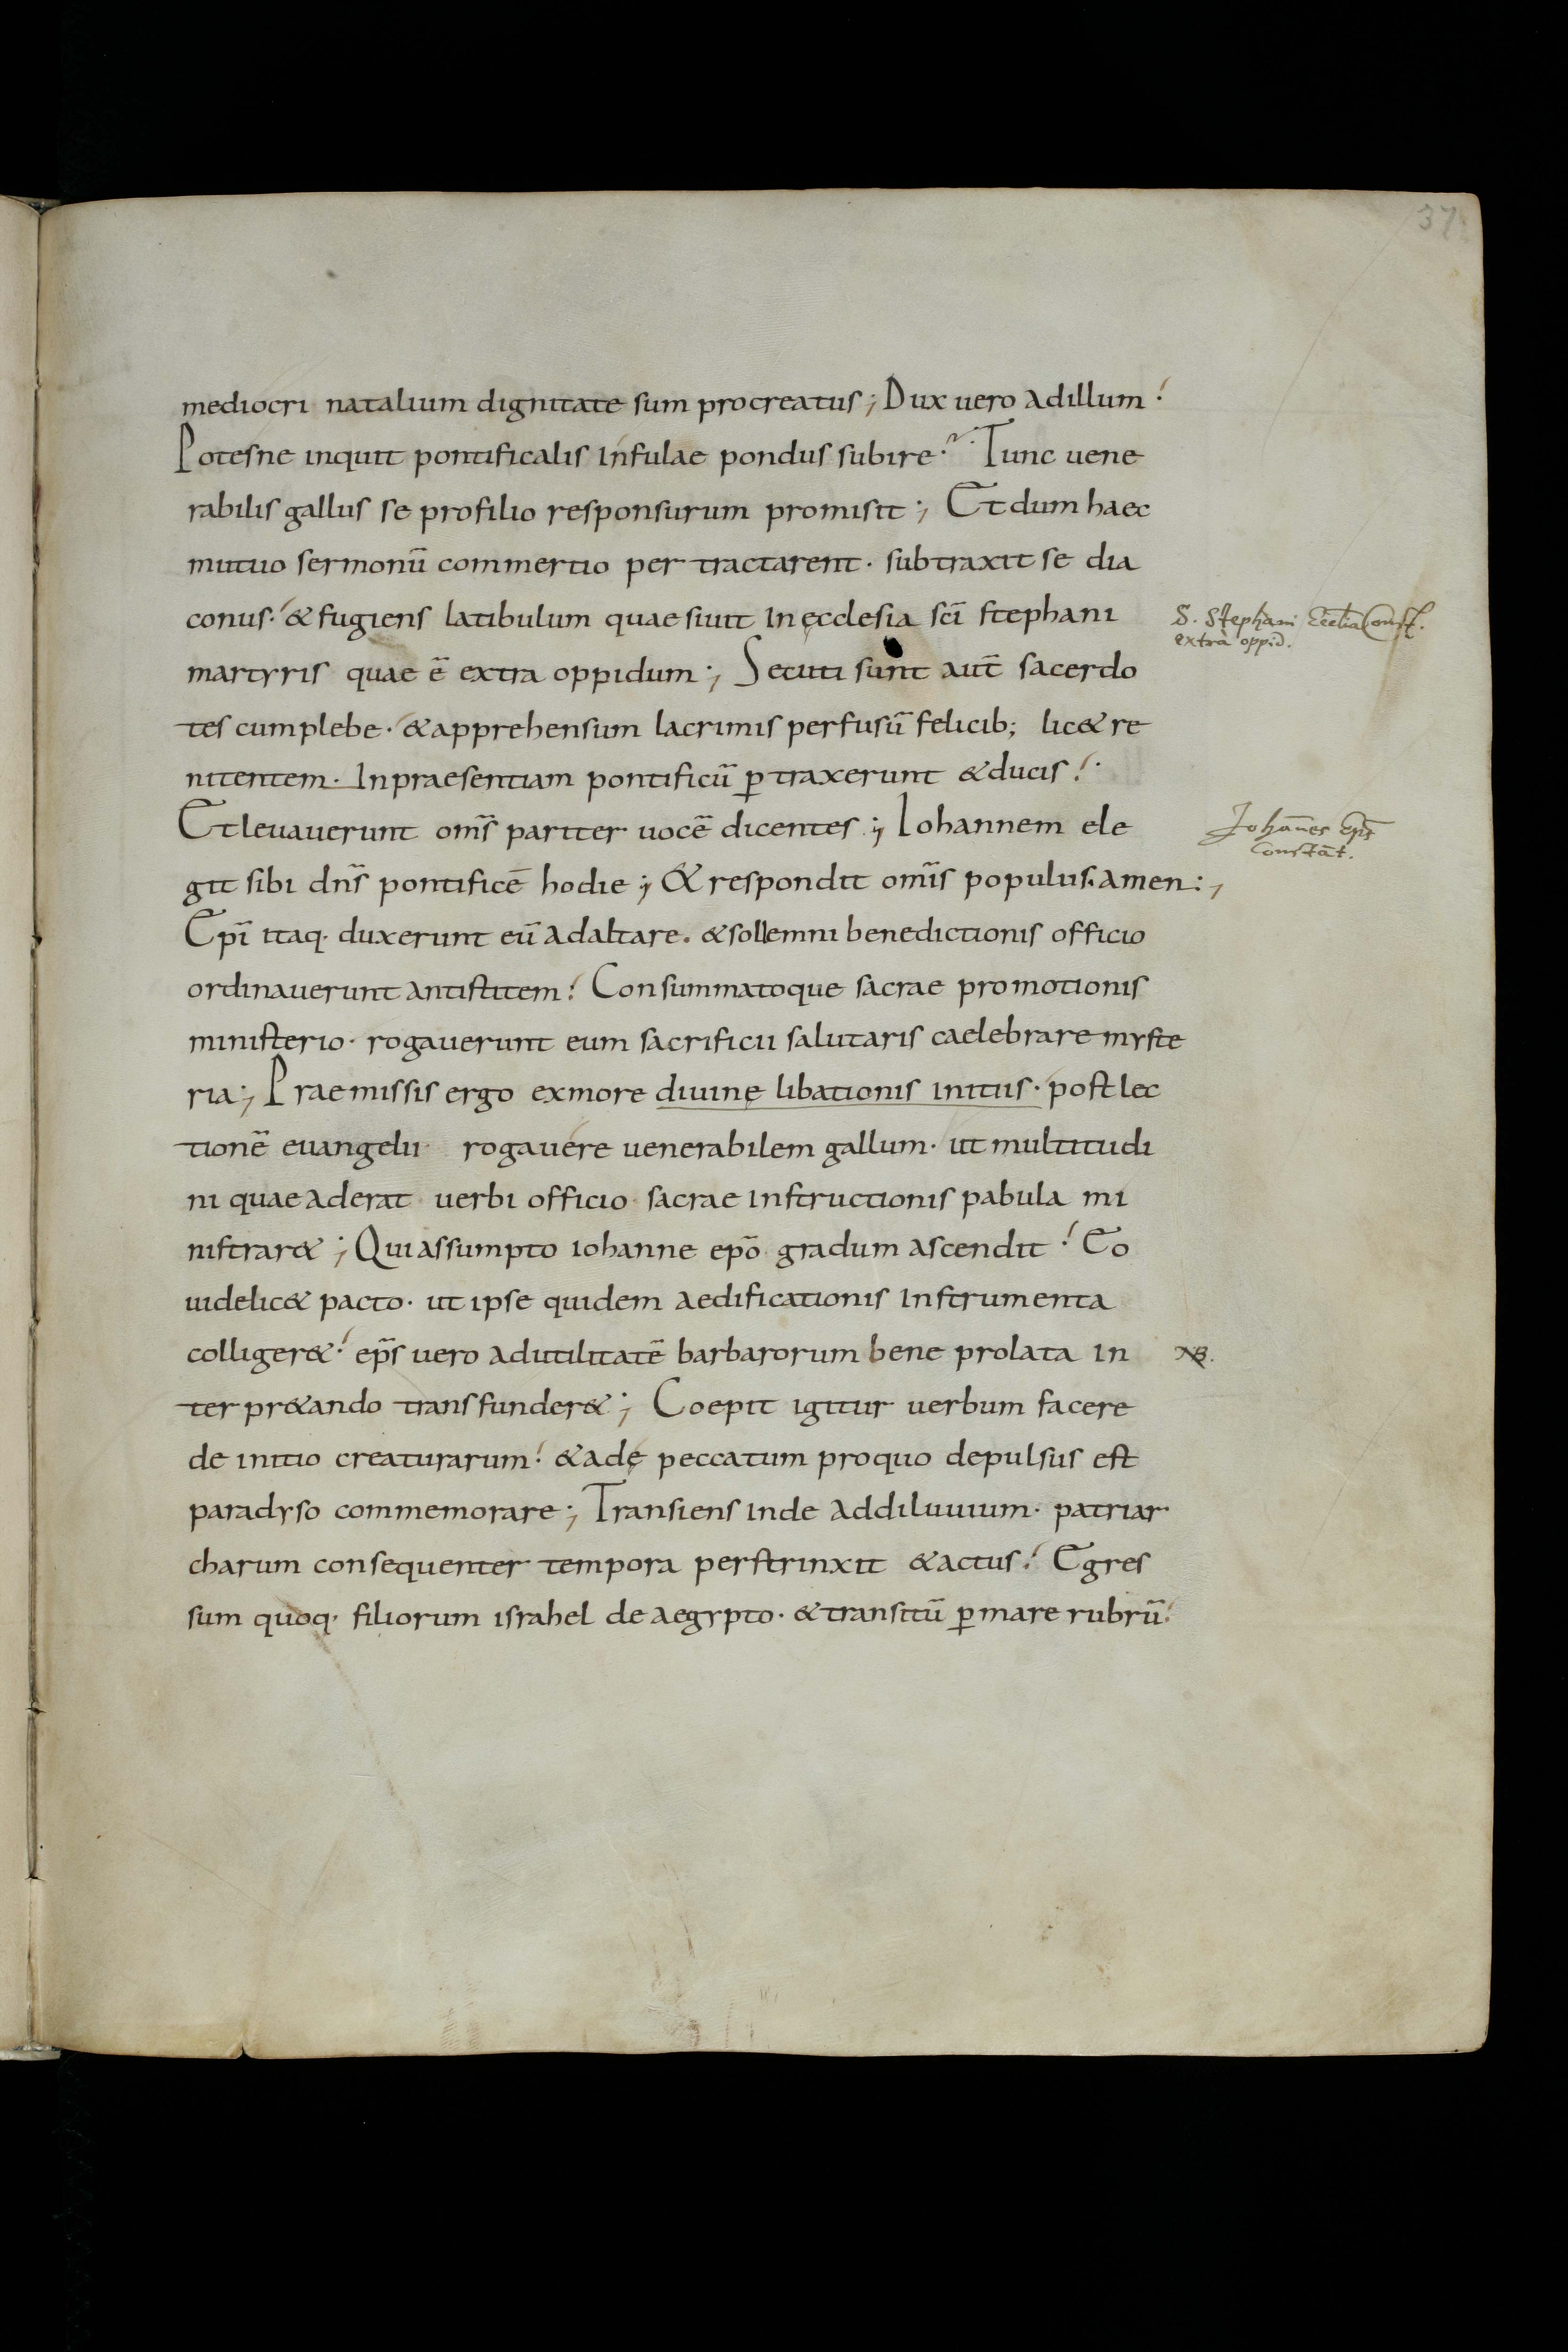 37
mediocri natalium dignitate sum procreatus; Dux uero adillum.
Potesne inquit pontificalis infulae pondus subire. Tunc uene
rabilis gallus se profilio responsurum promisit; Et dum haec
mutuo sermonū commertio per tractarent. subtraxit se dia
conus. & fugiens latibulum quaesiuit in ęcclesia sc̄i stephani
S. Stephani Eccl̄ia Const.
extrà oppid.
martyris quae ē extra oppidum; Secuti sunt aut̄ sacerdo
tes cumplebe. & apprehensum lacrimis perfusū felicib; lic& re
nitentem. Inpraesentiam pontificū ꝑtraxerunt & ducis.
Et leuauerunt om̄s pariter uocē dicentes; Iohannem ele
Johan̄es Ep̄s
Constāt.
git sibi dn̄s pontificē hodie; & respondit om̄is populus. amen:,
Ep̄i itaq. duxerunt eū adaltare. & sollemni benedictionis officio
ordinauerunt antistitem. Consummatoque sacrae promotionis
ministerio. rogauerunt eum sacrificii salutaris caelebrare myste
ria; Praemissis ergo exmore diuinę libationis initiis. post lec
tionē euangelii. rogauere uenerabilem gallum. ut multitudi
ni quae aderat uerbi officio sacrae instructionis pabula mi
nistrar&; Qui assumpto iohanne ep̄o gradum ascendit. Eo
uidelic& pacto. ut ipse quidem aedificationis instrumenta
colliger&. ep̄s uero adutilitatē barbarorum bene prolata in
NB.
terpr&ando transfunder&; Coepit igitur uerbum facere
de initio creaturarum. & adę peccatum proquo depulsus est
paradyso commemorare; Transiens inde addiluuium. patriar
charum consequenter tempora perstrinxit & actus. Egres
sum quoq. filiorum israhel de aegypto. & transitū ꝑ mare rubrū.